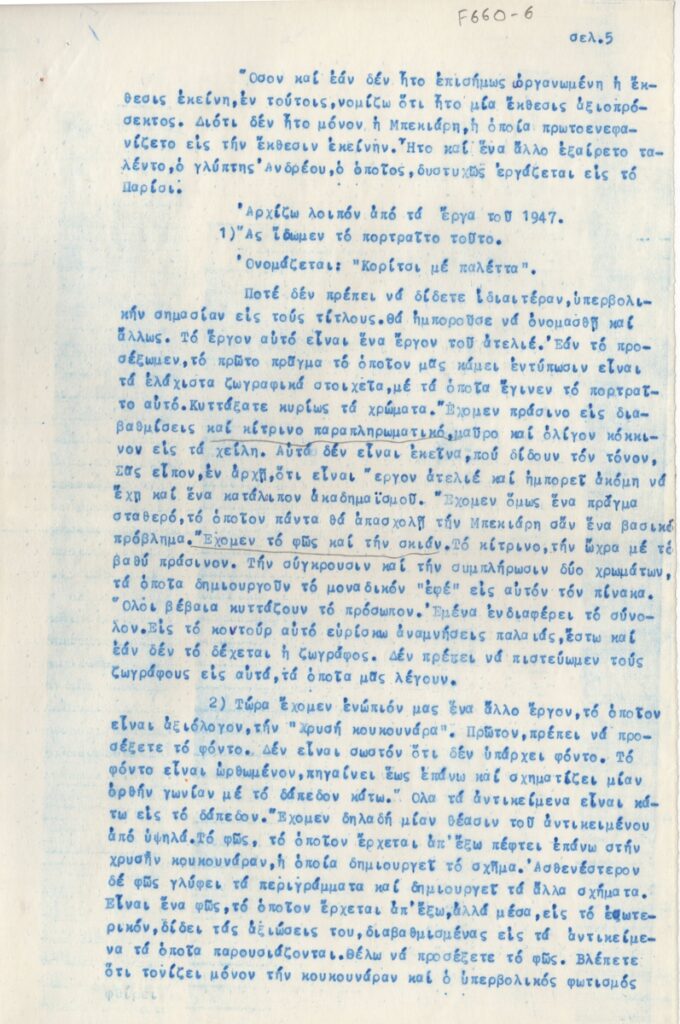 F660-6
σελ.5
Ὅσον καί ἐάν δέν ἦτο ἐπισήμως ὠργανωμένη ἡ ἔκ-
θεσις ἐκείνη,ἐν τούτοις,νομίζω ὅτι ἦτο μία ἔκθεσις ἀξιοπρό-
σεκτος. Διότι δέν ἦτο μόνον ἡ Μπεκιάρη,ἡ ὁποία πρωτοενεφα-
νίζετο εἰς τήν ἔκθεσιν ἐκείνην. Ἦτο καί ἕνα ἄλλο ἐξαίρετο τα-
λέντο,ὁ γλύπτης Ἀνδρέου,ὁ ὁποῖος,δυστυχῶς ἐργάζεται εἰς τό
Παρίσι.
Ἀρχίζω λοιπόν ἀπό τά ἔργα τοῦ 1947.
1)Ἄς ἴδωμεν τό πορτραῖτο τοῦτο.
Ὀνομάζεται: "Κορίτσι μέ παλέττα".
Ποτέ δέν πρέπει νά δίδετε ἰδιαιτέραν,ὑπερβολι-
κήν σημασίαν εἰς τούς τίτλους.θά ἠμποροῦσε νά ὀνομασθῇ καί
ἄλλως. Τό ἔργον αὐτό εἶναι ἕνα ἔργον τοῦ ἀτελιέ. Ἐάν τό προ-
σέξωμεν,τό πρῶτο πρᾶγμα τό ὁποῖον μᾶς κάμει ἐντύπωσιν εἶναι
τά ἐλάχιστα ζωγραφικά στοιχεῖα,μέ τά ὁποῖα ἔγινεν τό πορτραῖ-
το αὐτό.Κυττάξατε κυρίως τά χρώματα. Ἔχομεν πράσινο εἰς δια-
βαθμίσεις καί κίτρινο παραπληρωματικό,μαῦρο καί ὀλίγον κόκκι-
νον εἰς τά χείλη. Αὐτά δέν εἶναι ἐκεῖνα,πού δίδουν τόν τόνον,
Σᾶς εἶπον,ἐν ἀρχῇ,ὅτι εἶναι ἔργον ἀτελιέ καί ἠμπορεῖ ἀκόμη νά
ἔχῃ καί ἕνα κατάλιπον ἀκαδημαϊσμοῦ. Ἔχομεν ὅμως ἕνα πρᾶγμα
σταθερό,τό ὁποῖον πάντα θά ἀπασχολῇ τήν Μπεκιάρη σάν ἕνα βασικό
πρόβλημα. Ἔχομεν τό φῶς καί τήν σκιάν.Τό κίτρινο,τήν ὤχρα μέ τό
βαθύ πράσινον. Τήν σύγκρουσιν καί τήν συμπλήρωσιν δύο χρωμάτων,
τά ὁποῖα δημιουργοῦν τό μοναδικόν "ἐφέ" εἰς αὐτόν τόν πίνακα.
Ὅλοι βέβαια κυττάζουν τό πρόσωπον. Ἐμένα ἐνδιαφέρει τό σύνο-
λον.Εἰς τό κοντούρ αὐτό εὑρίσκω ἀναμνήσεις παλαιάς,ἔστω καί
ἐάν δέν τό δέχεται ἡ ζωγράφος. Δέν πρέπει νά πιστεύωμεν τούς
ζωγράφους εἰς αὐτά,τά ὁποῖα μᾶς λέγουν.
2) Τώρα ἔχομεν ἐνώπιόν μας ἕνα ἄλλο ἔργον,τό ὁποῖον
εἶναι ἀξιόλογον,τήν "Χρυσῆ κουκουνάρα". Πρῶτον,πρέπει νά προ-
σέξετε τό φόντο. Δέν εἶναι σωστόν ὅτι δέν ὑπάρχει φόντο. Τό
φόντο εἶναι ὠρθωμένον,πηγαίνει ἕως ἐπάνω καί σχηματίζει μίαν
ὀρθήν γωνίαν μέ τό δάπεδον κάτω. Ὅλα τά ἀντικείμενα εἶναι κά-
τω εἰς τό δάπεδον. Ἔχομεν δηλαδή μίαν θέασιν τοῦ ἀντικειμένου
ἀπό ὑψηλά.Τό φῶς, τό ὁποῖον ἔρχεται ἀπ'ἔξω πέφτει ἐπάνω στήν
χρυσῆν κουκουνάραν,ἡ ὁποία δημιουργεῖ τό σχῆμα. Ἀσθενέστερον
δέ φῶς γλύφει τά περιγράμματα καί δημιουργεῖ τά ἄλλα σχήματα.
Εἶναι ἕνα φῶς,τό ὁποῖον ἔρχεται ἀπ'ἔξω,ἀλλά μέσα,εἰς τό ἐσωτε-
ρικόν,δίδει τάς ἀξιώσεις του,διαβαθμισμένας εἰς τά ἀντικείμε-
να τά ὁποῖα παρουσιάζονται.θέλω νά προσέξετε τό φῶς. Βλέπετε
ὅτι τονίζει μόνον τήν κουκουνάραν καί ὁ ὑπερβολικός φωτισμός